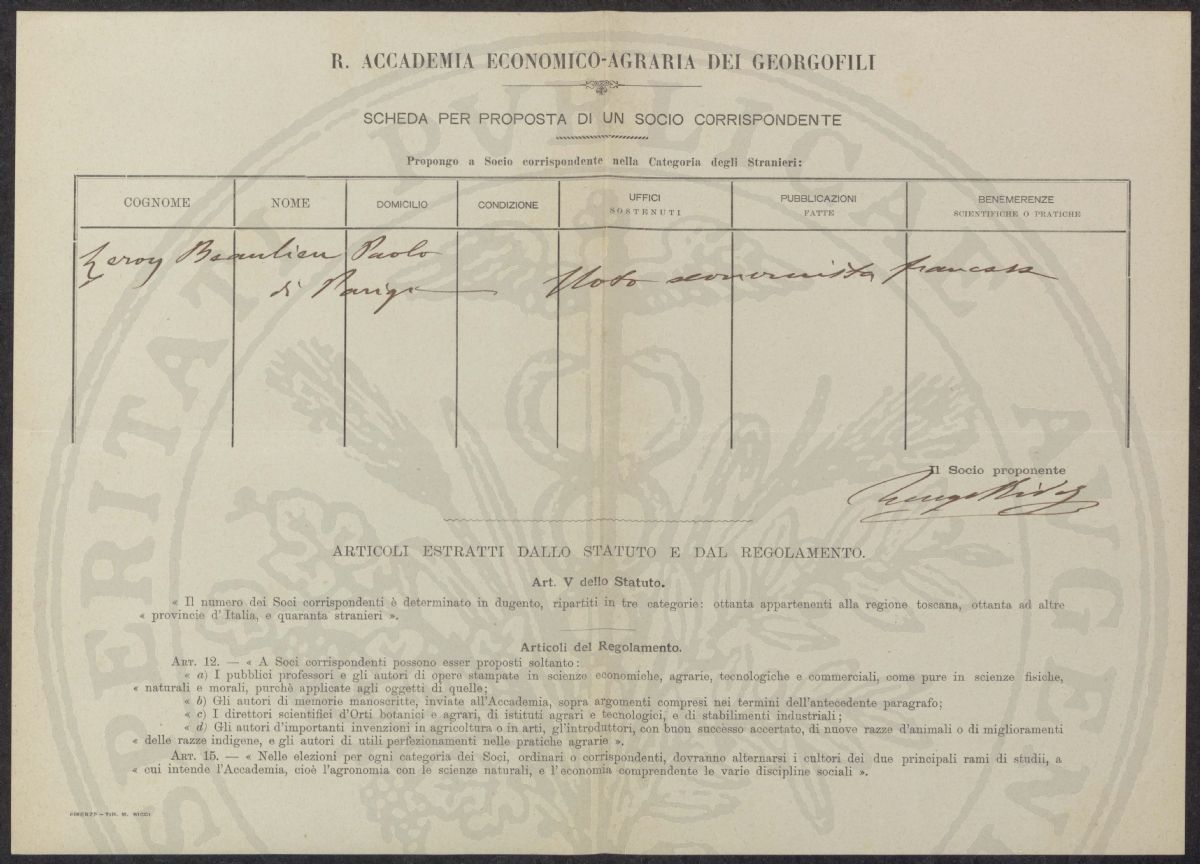 R. ACCADEMIA ECONOMICO-AGRARIA DEI GEORGOFILI
SCHEDA PER PROPOSTA DI UN SOCIO CORRISPONDENTE
Propongo a Socio corrispondente nella Categoria degli Stranieri:
COGNOME NOME DOMICILIO CONDIZIONE UFFICI SOSTENUTI PUBBLICAZIONI FATTE BENEMERENZE SCIENTIFICHE O PRATICHE
Leroy Beaulieu Paolo
di Parigi — Noto economista francese
Il Socio proponente
ARTICOLI ESTRATTI DALLO STATUTO E DAL REGOLAMENTO.
Art. V dello Statuto.
« Il numero dei Soci corrispondenti è determinato in dugento, ripartiti in tre categorie: ottanta appartenenti alla regione toscana, ottanta ad altre
« provincie d'Italia, e quaranta stranieri ».
Articoli del Regolamento.
ART. 12. — « A Soci corrispondenti possono esser proposti soltanto:
« a) I pubblici professori e gli autori di opere stampate in scienze economiche, agrarie, tecnologiche e commerciali, come pure in scienze fisiche,
« naturali e morali, purchè applicate agli oggetti di quelle;
« b) Gli autori di memorie manoscritte, inviate all'Accademia, sopra argomenti compresi nei termini dell'antecedente paragrafo;
« c) I direttori scientifici d'Orti botanici e agrari, di istituti agrari e tecnologici, e di stabilimenti industriali;
« d) Gli autori d'importanti invenzioni in agricoltura o in arti, gl'introduttori, con buon successo accertato, di nuove razze d'animali o di miglioramenti
« delle razze indigene, e gli autori di utili perfezionamenti nelle pratiche agrarie ».
ART. 15. — « Nelle elezioni per ogni categoria dei Soci, ordinari o corrispondenti, dovranno alternarsi i cultori dei due principali rami di studii, a
« cui intende l'Accademia, cioè l'agronomia con le scienze naturali, e l'economia comprendente le varie discipline sociali ».
FIRENZE — TIP. M. RICCI
PROSPERITATI PVBLICAE AVGENDAE